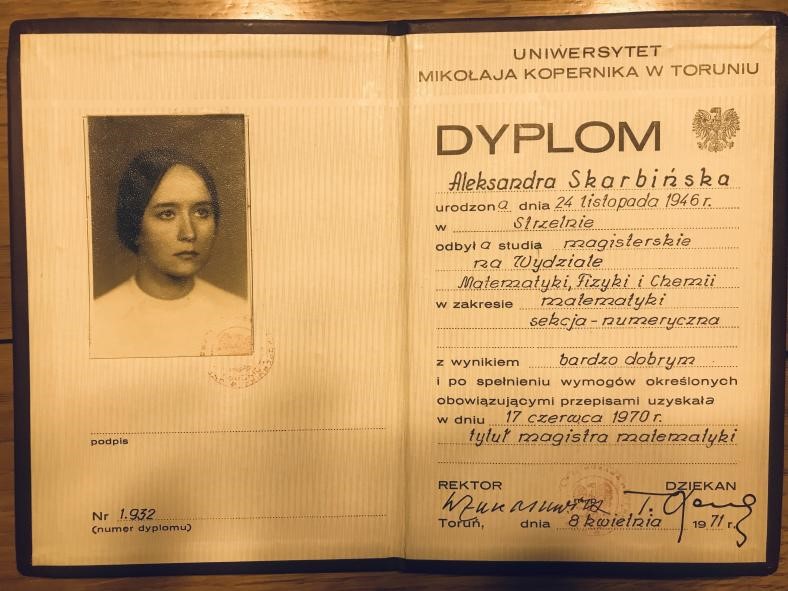 podpis
Nr 1.932
(numer dyplomu)
UNIWERSYTET
MIKOŁAJA KOPERNIKA W TORUNIU
DYPLOM
Aleksandra Skarbińska
urodzona dnia 24 listopada 1946 r.
w Strzelnie
odbyła studia magisterskie
na Wydziale
Matematyki, Fizyki i Chemii
w zakresie matematyki
sekcja - numeryczna
z wynikiem bardzo dobrym
i po spełnieniu wymogów określonych
obowiązującymi przepisami uzyskała
w dniu 17 czerwca 1970 r.
tytuł magistra matematyki
REKTOR DZIEKAN
Toruń, dnia 8 kwietnia 1971 r.